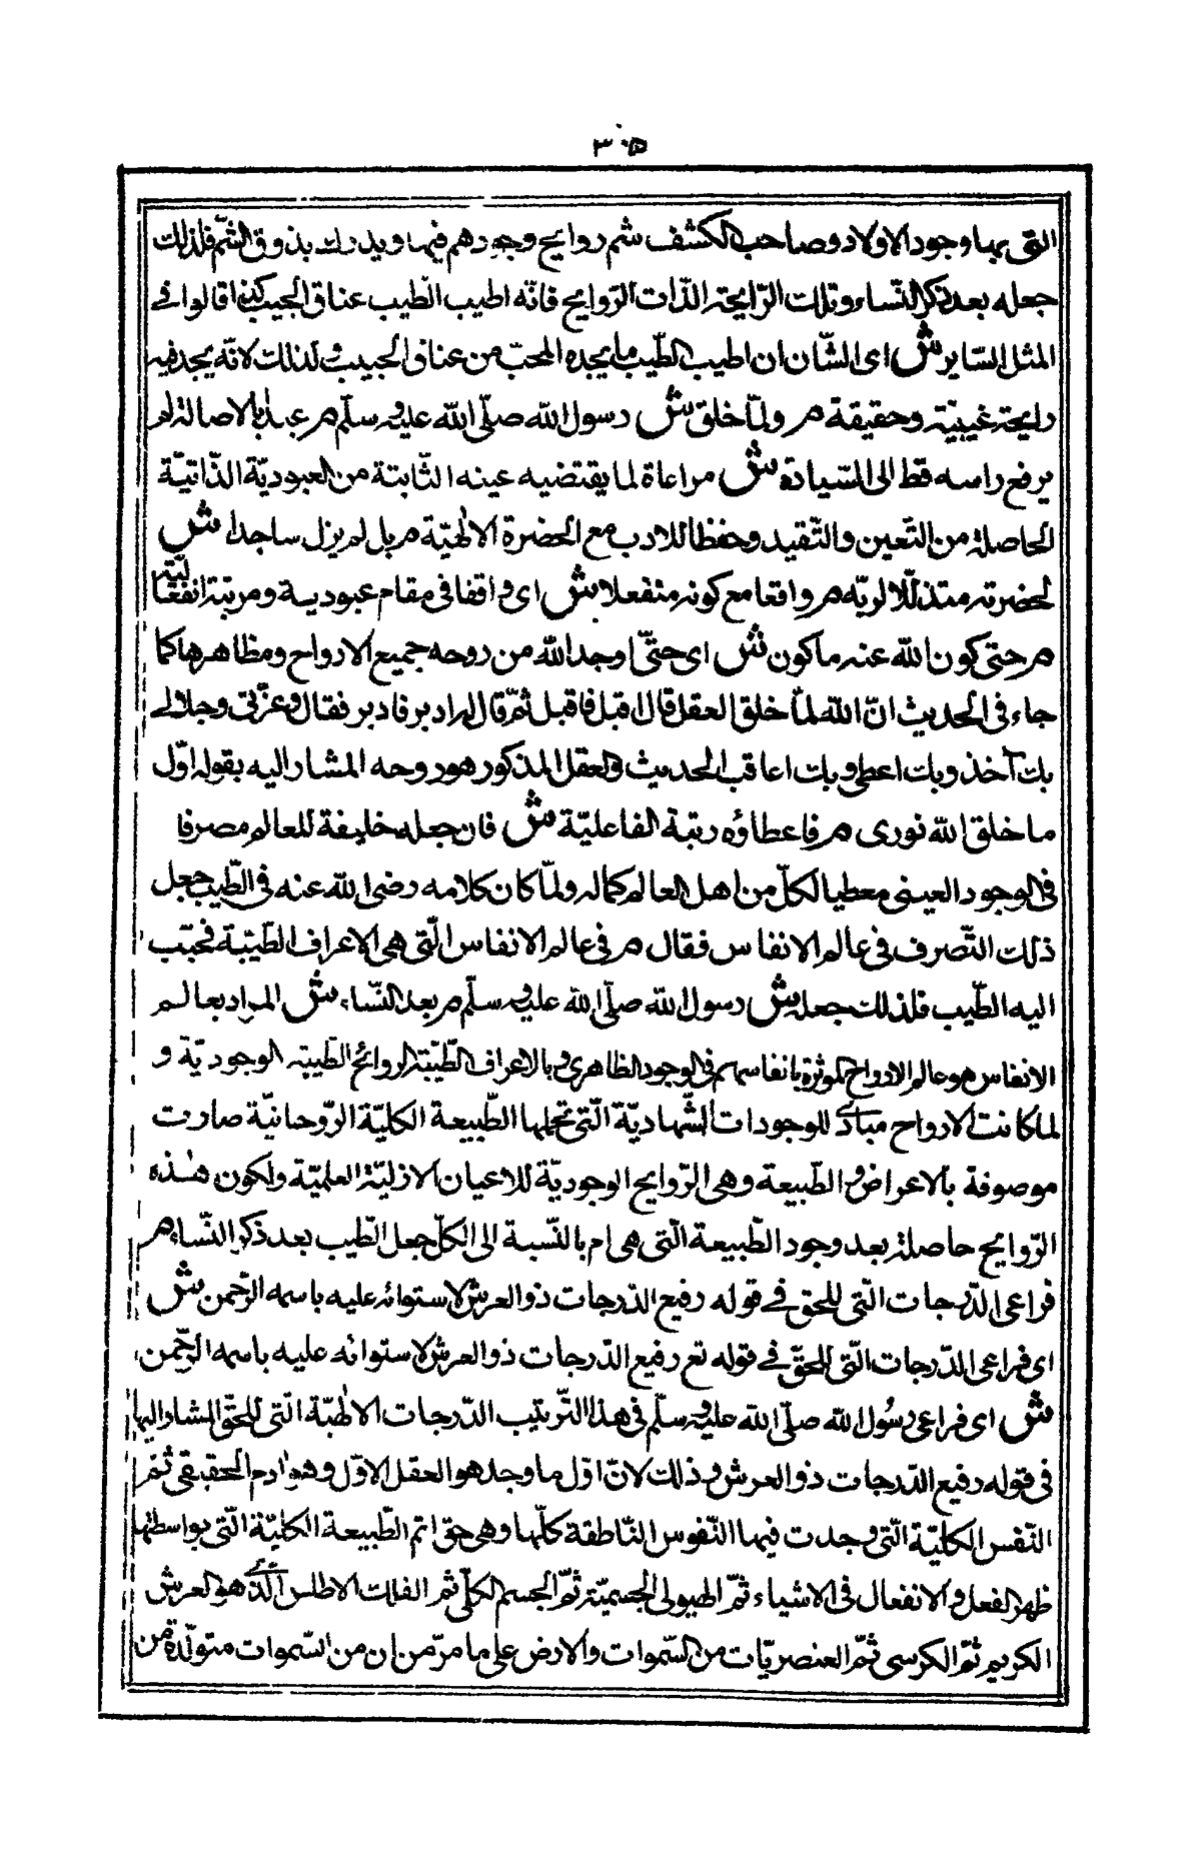 ٣٠٥
التى بها وجود الاولاد وصاحب الكشف شم روايح وجودهم فيها ويدرك بذوق الشّم فلذلك
جعله بعد ذكر النّساء وتلك الرّايحة الذّات الرّوايح فانّه اطيب الطّيب عناق الحبيب كذا قالوا فى
المثل السّاير ش اى الشّان ان اطيب الطّيب ما يجده المحبّ من عناق الحبيب وذلك لانّه يجد فيه
رايحة غيبيّة وحقيقة م ولمّا خلق ش رسول الله صلّى الله عليه وسلّم م عبدا بالاصالة لم
يرفع راسه قط الى السّيادة ش مراعاة لما يقتضيه عينه الثّابتة من العبوديّة الذّاتيّة
الحاصلة من التّعين والتّقيد وحفظا للادب مع الحضرة الالٰهيّة م بل لم يزل ساجدا ش
لحضرته متذلّلا لربّه م واقعا مع كونه منفعلا ش اى واقفا فى مقام عبودية ومرتبة انفعاليّته
م حتى كون الله عنه ما كون ش اى حتّى اوجد الله من روحه جميع الارواح ومظاهرها كما
جاء فى الحديث انّ الله لمّا خلق العقل قال اقبل فاقبل ثمّ قال له ادبر فادبر فقال وعزّتى وجلالى
بك آخذ وبك اعطى وبك اعاقب الحديث والعقل المذكور هو روحه المشار اليه بقوله اوّل
ما خلق الله نورى م فاعطاؤه رتبة الفاعليّة ش فان جعله خليفة للعالم مصرفا
فى الوجود العينى معطيا لكلّ من اهل العالم كماله ولمّا كان كلامه رضى الله عنه فى الطّيب جعل
ذلك التّصرف فى عالم الانفاس فقال م فى عالم الانفاس الّتى هى الاعراف الطّيبة فحبّب
اليه الطّيب فلذلك جعله ش رسول الله صلّى الله عليه وسلّم م بعد النّساء ش المراد بعالم
الانفاس هو عالم الارواح المؤثرة بانفاسهم فى الوجود الظاهرى وبالاعراف الطّيّبة الروائح الطّيبة الوجوديّة و
لما كانت الارواح مبادئ للوجودات الشّهاديّة الّتى تحملها الطّبيعة الكليّة الرّوحانيّة صارت
موصوفة بالاعراض و الطّبيعة وهى الرّوايح الوجوديّة للاعيان الازليّة العلميّة ولكون هٰذه
الرّوايح حاصلة بعد وجود الطّبيعة الّتى هى ام بالنّسبة الى الكلّ جعل الطّيب بعد ذكر النّساء م
فراعى الدّرجات الّتى للحق فى قوله رفيع الدّرجات ذو العرش لاستوائه عليه باسمه الرّحمن ش
اى فراعى الدّرجات الّتى للحقّ فى قوله تع رفيع الدّرجات ذو العرش لاستوائه عليه باسمه الرّحمن
ش اى فراعى رسُول الله صلّى الله عليه وسلّم فى هذا التّرتيب الدّرجات الالٰهيّة الّتى للحقّ المشار اليها
فى قوله رفيع الدّرجات ذو العرش وذلك لانّ اوّل ما وجد هو العقل الاوّل وهو آدم الحقيقى ثمّ
النّفس الكليّة الّتى وجدت فيها النّفوس النّاطقة كلّها وهى حوّا ثم الطّبيعة الكليّة الّتى بواسطتها
ظهر الفعل والانفعال فى الاشياء ثمّ الهيولى الجسميّة ثمّ الجسم الكلّى ثم الفلك الاطلس الّذى هو العرش
الكريم ثمّ الكرسى ثمّ العنصريّات من السّموات والارض على ما مرّ من ان من السّموات متولّدة من